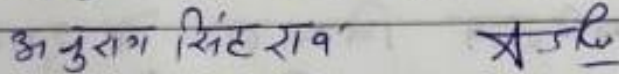 अनुराग सिंह राव